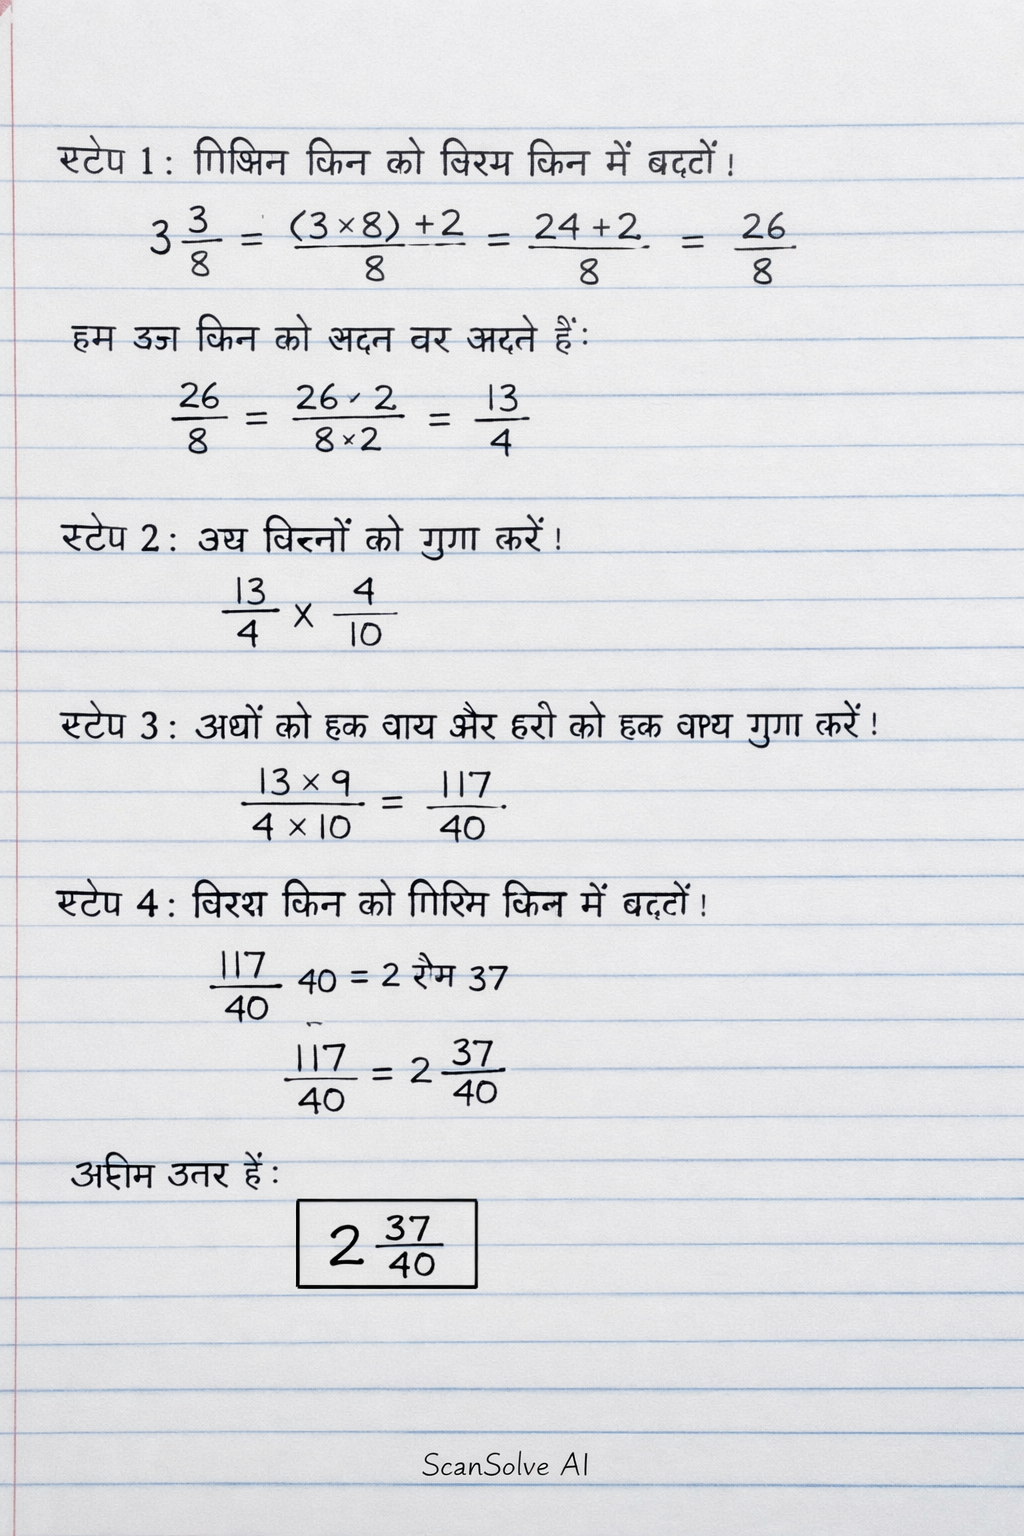 स्टेप 1: गिभिन किन को विरम किन में बदटों!
3 3/8 = (3×8)+2/8 = 24+2/8 = 26/8
हम उज किन को अदन वर अदते हैं:
26/8 = 26 ✓ 2/8×2 = 13/4
स्टेप 2: उय विरनों को गुगा करें!
13/4 × 4/10
स्टेप 3: अथों को हक वाय और हरो को हक वाय गुगा करें!
13 × 9/4 × 10 = 117/40.
स्टेप 4: विरश किन को गिरिम किन में बदटों!
117/40 40 = 2 रोम 37
117/40 = 2 37/40
उतर हैं:
2 37/40
ScanSolve AI